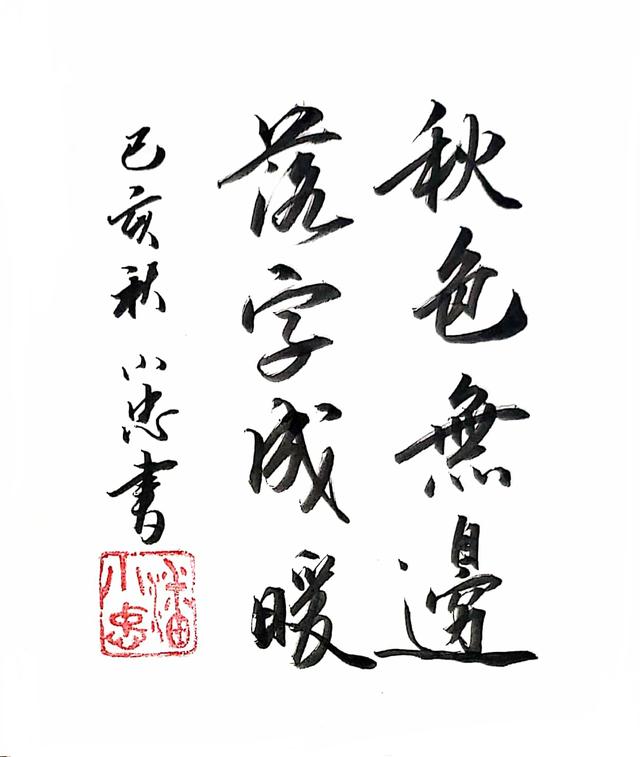 秋色無邊
落字成暖
己亥秋 小忠書
潘小忠